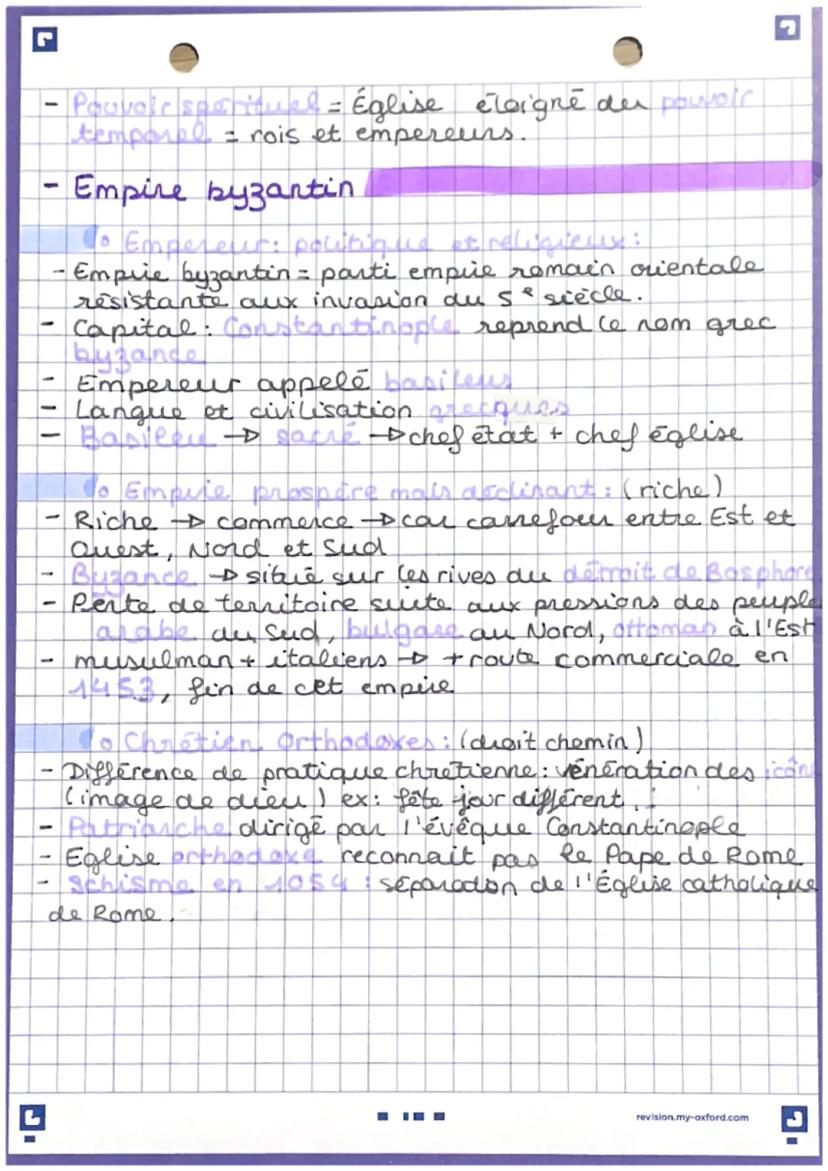 - Pouvoir spirituel = Église éloigné du pouvoir
temporel = rois et empereurs.
- Empire byzantin
o Empereur: politique et religieux:
- Empire byzantin = parti empire romain orientale
résistante aux invasion du 5e siècle.
- Capital: Constantinople reprend le nom grec
byzance
- Empereur appelé basileus
- Langue et civilisation grecques
- Basileu → sacré → chef état + chef église
o Empire prospère mais déclinant: (riche)
- Riche → commerce → car carrefour entre Est et
Ouest, Nord et Sud
- Byzance → situé sur les rives du détroit de Bosphore
- Perte de territoire suite aux pressions des peuple
arabe du Sud, bulgare au Nord, ottoman à l'Est
- musulman + italiens → + route commerciale en
1453, fin de cet empire
o Chrétien Orthodoxes: (droit chemin)
- Différence de pratique chrétienne: vénération des icôn
(image de dieu) ex: fête jour différent.
- Patriarche dirigé par l'évêque Constantinople
- Eglise orthodoxe reconnait pas le Pape de Rome
- Schisme en 1054: séparation de l'Église catholique
de Rome.
revision.my-oxford.com